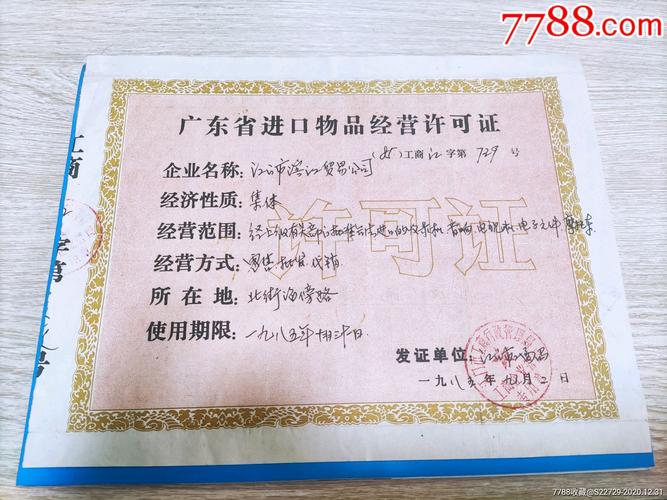 7788.com
广东省进口物品经营许可证
工商江字第729号
企业名称:江门市滨江贸易公司
经济性质:集体
经营范围:经上级有关部门批准合法进口的收录机 音响 电视机 电子元件 摩托车
经营方式:零售 批发 代销
所在地:北街海傍路
使用期限:一九八五年
发证单位:江门市
一九八五年 月二日
许可证
工商
字第
号
7788收藏@S22729-2020.12.31